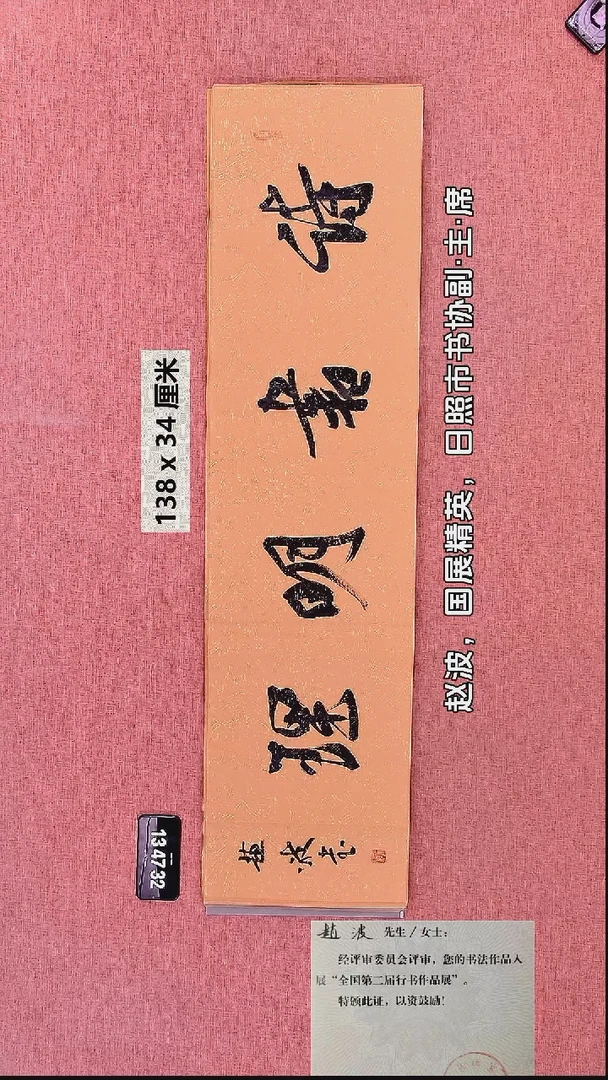 明理
趙波书
138 x 34 厘米
赵波，国展精英，日照市书协副·主·席
134732
趙波 先生/女士：
经评审委员会评审，您的书法作品入
展“全国第二届行书作品展”。
特颁此证，以资鼓励！